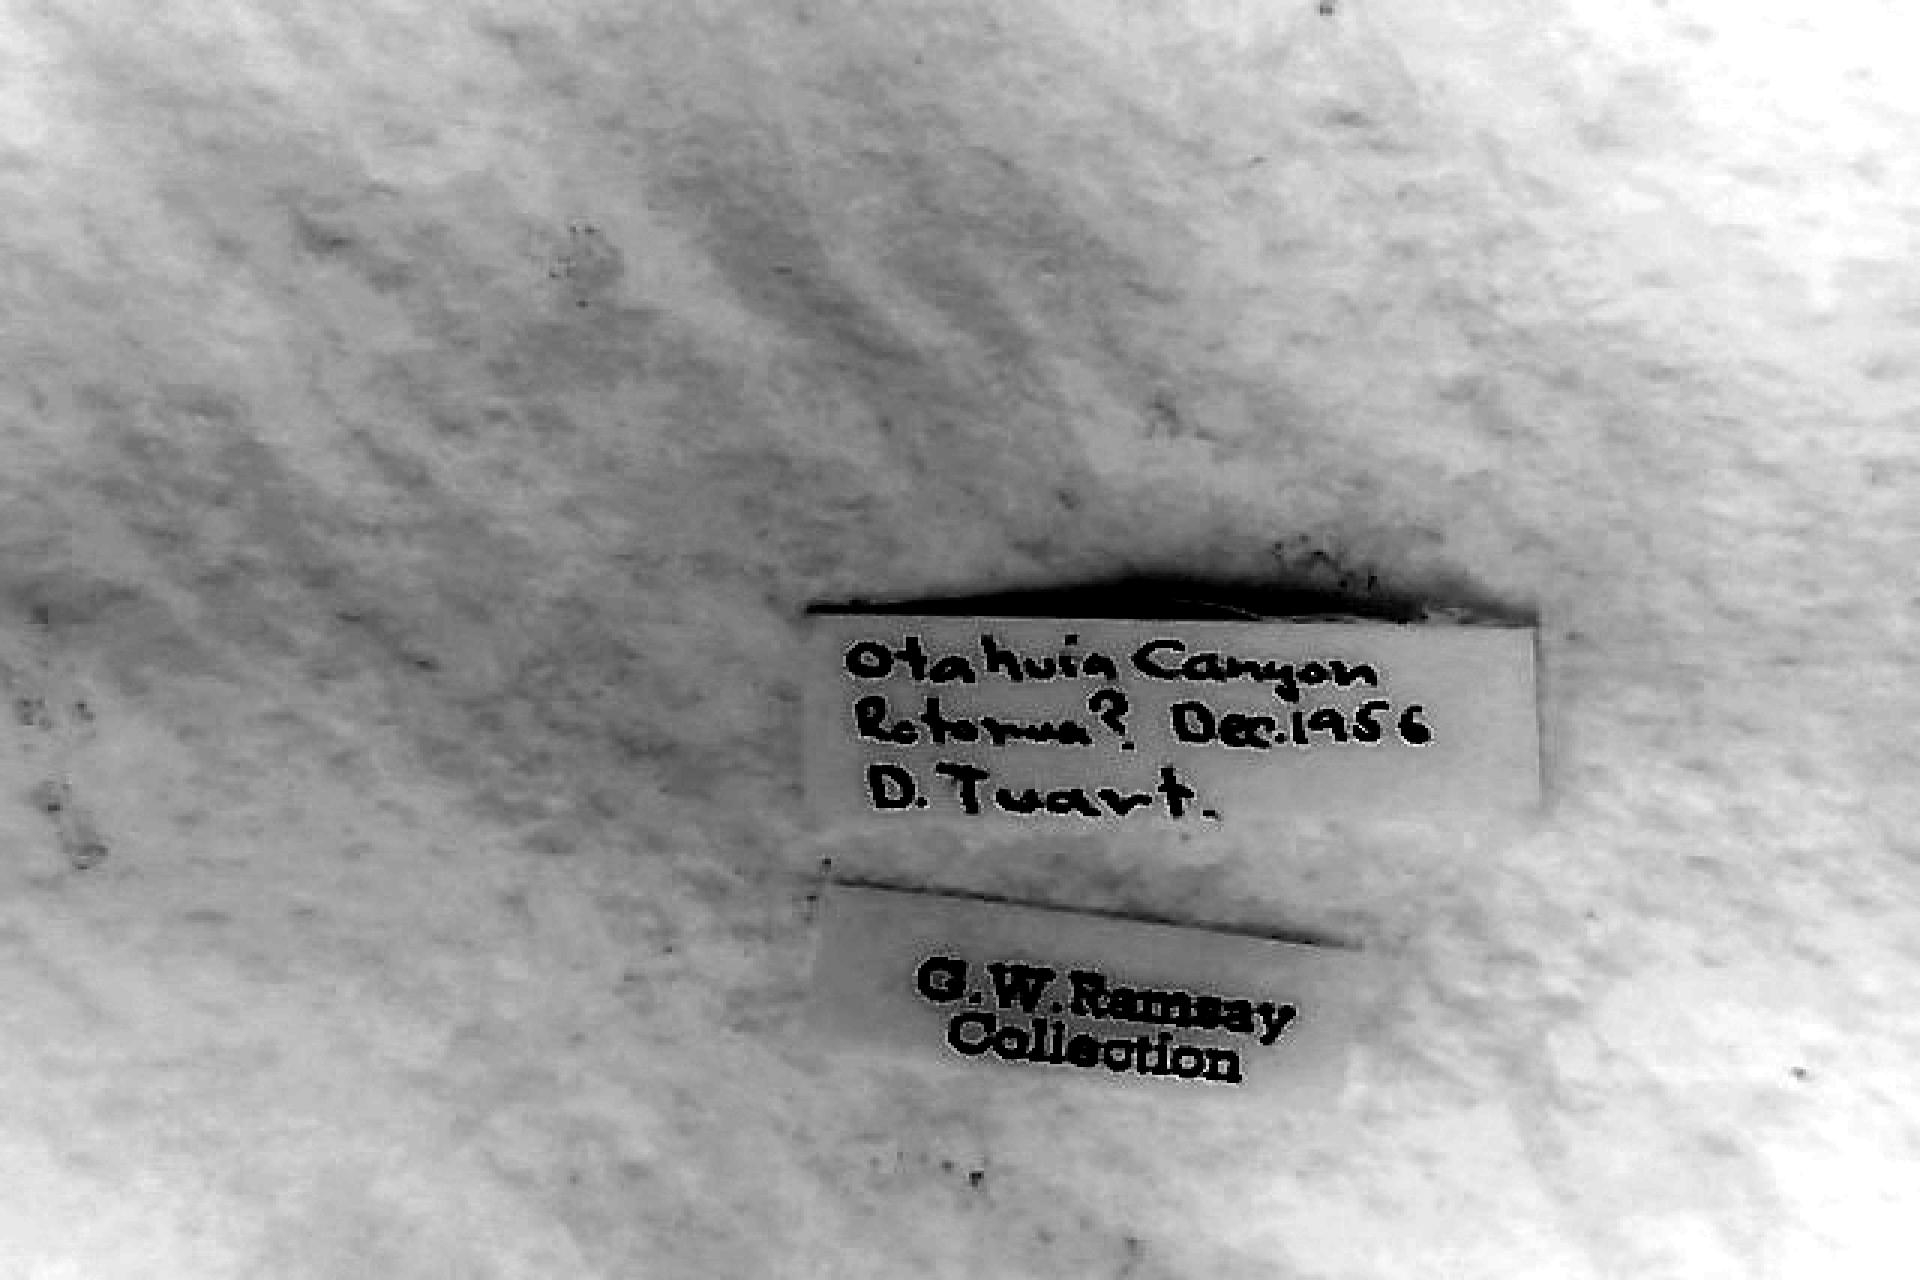 Otahuia Canyon
Rotorua? Dec.1956
D. Tuart.
G.W.Ramsay
Collection